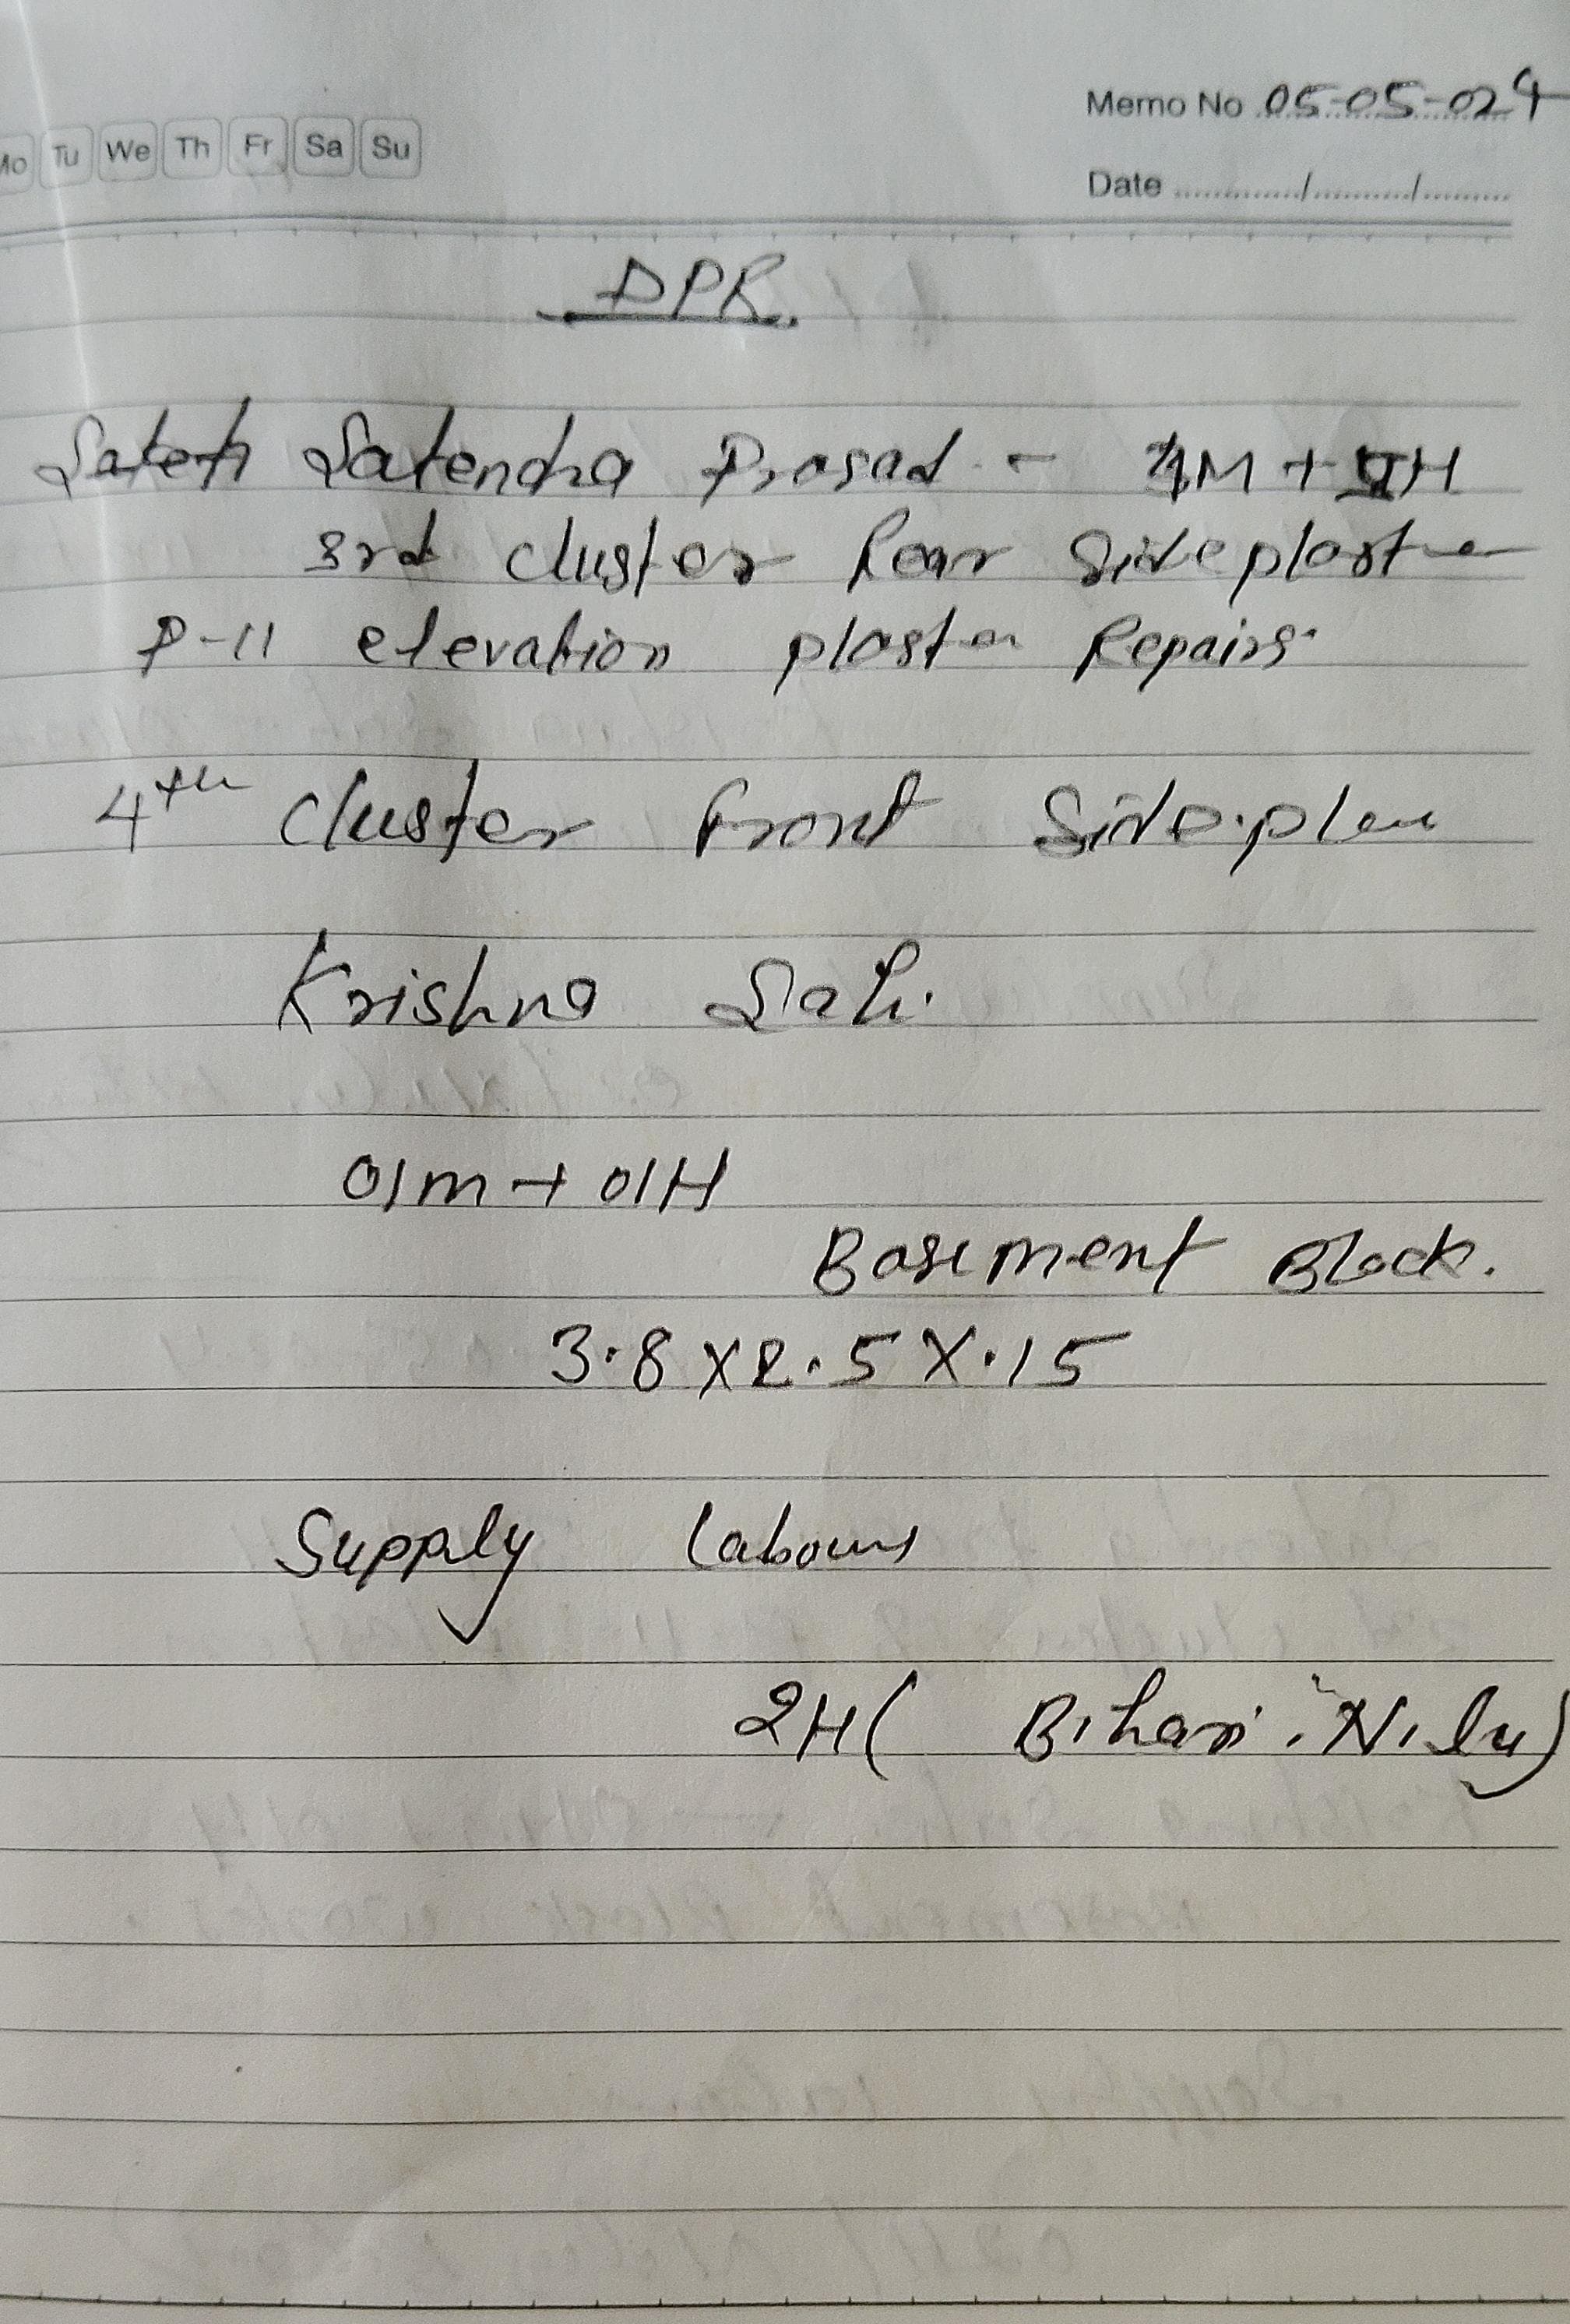 Memo No 05-05-024
Mo Tu We Th Fr Sa Su
Date ............/............/............
DPR.
Satendra Prasad - M + H
3rd cluster Rear Side plaster
P-11 elevation plaster Repairs.
4th cluster front Side plan
Krishna Sah.
01m + 01H
Basement Block.
3.8 X 2.5 X .15
Supply labours
2H ( Bihari . Nilu)